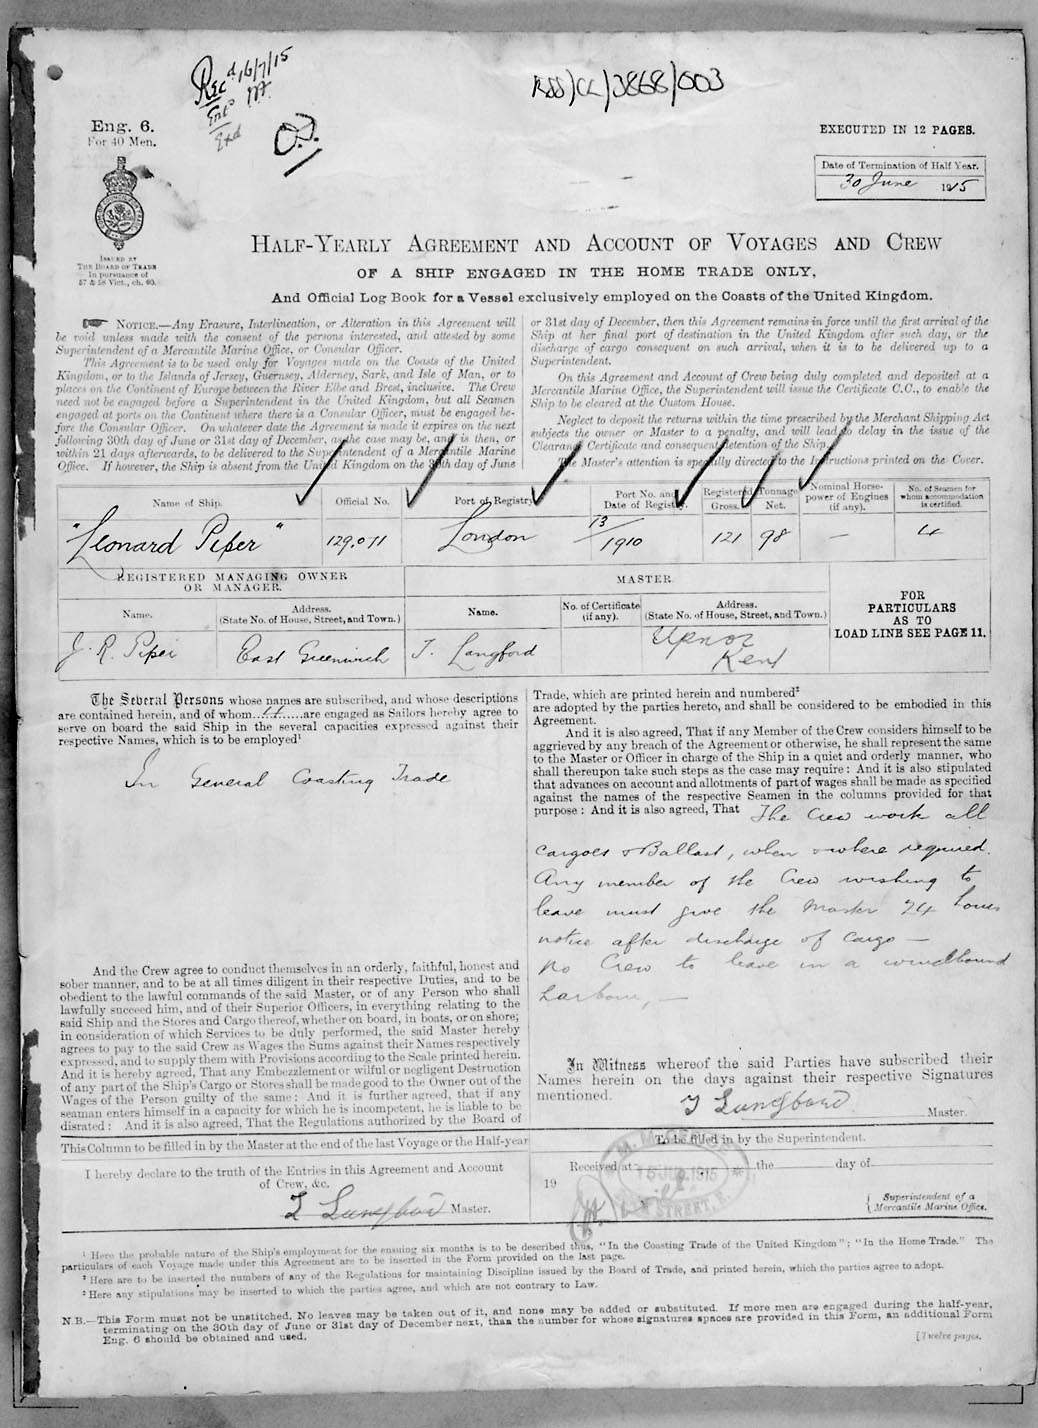 Recd 16/7/15
RSS/CL/3868/003
Eng. 6.
For 40 Men.
EXECUTED IN 12 PAGES.
Date of Termination of Half Year.
30 June 1915
ISSUED BY
THE BOARD OF TRADE
In pursuance of
57 & 58 Vict., ch. 60.
HALF-YEARLY AGREEMENT AND ACCOUNT OF VOYAGES AND CREW
OF A SHIP ENGAGED IN THE HOME TRADE ONLY,
And Official Log Book for a Vessel exclusively employed on the Coasts of the United Kingdom.
NOTICE.—Any Erasure, Interlineation, or Alteration in this Agreement will
be void unless made with the consent of the persons interested, and attested by some
Superintendent of a Mercantile Marine Office, or Consular Officer.
This Agreement is to be used only for Voyages made on the Coasts of the United
Kingdom, or to the Islands of Jersey, Guernsey, Alderney, Sark, and Isle of Man, or to
places on the Continent of Europe between the River Elbe and Brest, inclusive. The Crew
need not be engaged before a Superintendent in the United Kingdom, but all Seamen
engaged at ports on the Continent where there is a Consular Officer, must be engaged be-
fore the Consular Officer. On whatever date the Agreement is made it expires on the next
following 30th day of June or 31st day of December, as the case may be, and is then, or
within 21 days afterwards, to be delivered to the Superintendent of a Mercantile Marine
Office. If however, the Ship is absent from the United Kingdom on the 30th day of June
or 31st day of December, then this Agreement remains in force until the first arrival of the
Ship at her final port of destination in the United Kingdom after such day, or the
discharge of cargo consequent on such arrival, when it is to be delivered up to a
Superintendent.
On this Agreement and Account of Crew being duly completed and deposited at a
Mercantile Marine Office, the Superintendent will issue the Certificate C.C., to enable the
Ship to be cleared at the Custom House.
Neglect to deposit the returns within the time prescribed by the Merchant Shipping Act
subjects the owner or Master to a penalty, and will lead to delay in the issue of the
Clearance Certificate and consequent detention of the Ship.
The Master's attention is specially directed to the Instructions printed on the Cover.
Name of Ship. Official No. Port of Registry. Port No. and Date of Registry. Registered Tonnage Gross. Net. Nominal Horse-power of Engines (if any). No. of Seamen for whom accommodation is certified.
"Leonard Piper" 129,071 London 13/1910 121 98 — 4
REGISTERED MANAGING OWNER
OR MANAGER.
MASTER.
Name. Address. (State No. of House, Street, and Town.) Name. No. of Certificate (if any). Address. (State No. of House, Street, and Town.)
J. R. Piper East Greenwich T. Langford Upnor Kent
FOR
PARTICULARS
AS TO
LOAD LINE SEE PAGE 11.
The Several Persons whose names are subscribed, and whose descriptions
are contained herein, and of whom are engaged as Sailors hereby agree to
serve on board the said Ship in the several capacities expressed against their
respective Names, which is to be employed¹
In General Coasting Trade
And the Crew agree to conduct themselves in an orderly, faithful, honest and
sober manner, and to be at all times diligent in their respective Duties, and to be
obedient to the lawful commands of the said Master, or of any Person who shall
lawfully succeed him, and of their Superior Officers, in everything relating to the
said Ship and the Stores and Cargo thereof, whether on board, in boats, or on shore;
in consideration of which Services to be duly performed, the said Master hereby
agrees to pay to the said Crew as Wages the Sums against their Names respectively
expressed, and to supply them with Provisions according to the Scale printed herein.
And it is hereby agreed, That any Embezzlement or wilful or negligent Destruction
of any part of the Ship's Cargo or Stores shall be made good to the Owner out of the
Wages of the Person guilty of the same: And it is further agreed, that if any
seaman enters himself in a capacity for which he is incompetent, he is liable to be
disrated: And it is also agreed, That the Regulations authorized by the Board of
Trade, which are printed herein and numbered²
are adopted by the parties hereto, and shall be considered to be embodied in this
Agreement.
And it is also agreed, That if any Member of the Crew considers himself to be
aggrieved by any breach of the Agreement or otherwise, he shall represent the same
to the Master or Officer in charge of the Ship in a quiet and orderly manner, who
shall thereupon take such steps as the case may require: And it is also stipulated
that advances on account and allotments of part of wages shall be made as specified
against the names of the respective Seamen in the columns provided for that
purpose: And it is also agreed, That The Crew work all
cargoes & Ballast, when & where required.
Any member of the Crew wishing to
leave must give the Master 24 hours
notice after discharge of cargo —
No Crew to leave in a windbound
harbour, —
In Witness whereof the said Parties have subscribed their
Names herein on the days against their respective Signatures
mentioned.
T Langford Master.
This Column to be filled in by the Master at the end of the last Voyage or the Half-year
I hereby declare to the truth of the Entries in this Agreement and Account
of Crew, &c.
T Langford Master.
To be filled in by the Superintendent.
Received at the day of
19
Superintendent of a
Mercantile Marine Office.
¹ Here the probable nature of the Ship's employment for the ensuing six months is to be described thus, "In the Coasting Trade of the United Kingdom"; "In the Home Trade." The
particulars of each Voyage made under this Agreement are to be inserted in the Form provided on the last page.
² Here are to be inserted the numbers of any of the Regulations for maintaining Discipline issued by the Board of Trade, and printed herein, which the parties agree to adopt.
³ Here any stipulations may be inserted to which the parties agree, and which are not contrary to Law.
N.B.—This Form must not be unstitched. No leaves may be taken out of it, and none may be added or substituted. If more men are engaged during the half-year,
terminating on the 30th day of June or 31st day of December next, than the number for whose signatures spaces are provided in this Form, an additional Form
Eng. 6 should be obtained and used.
[Twelve pages.